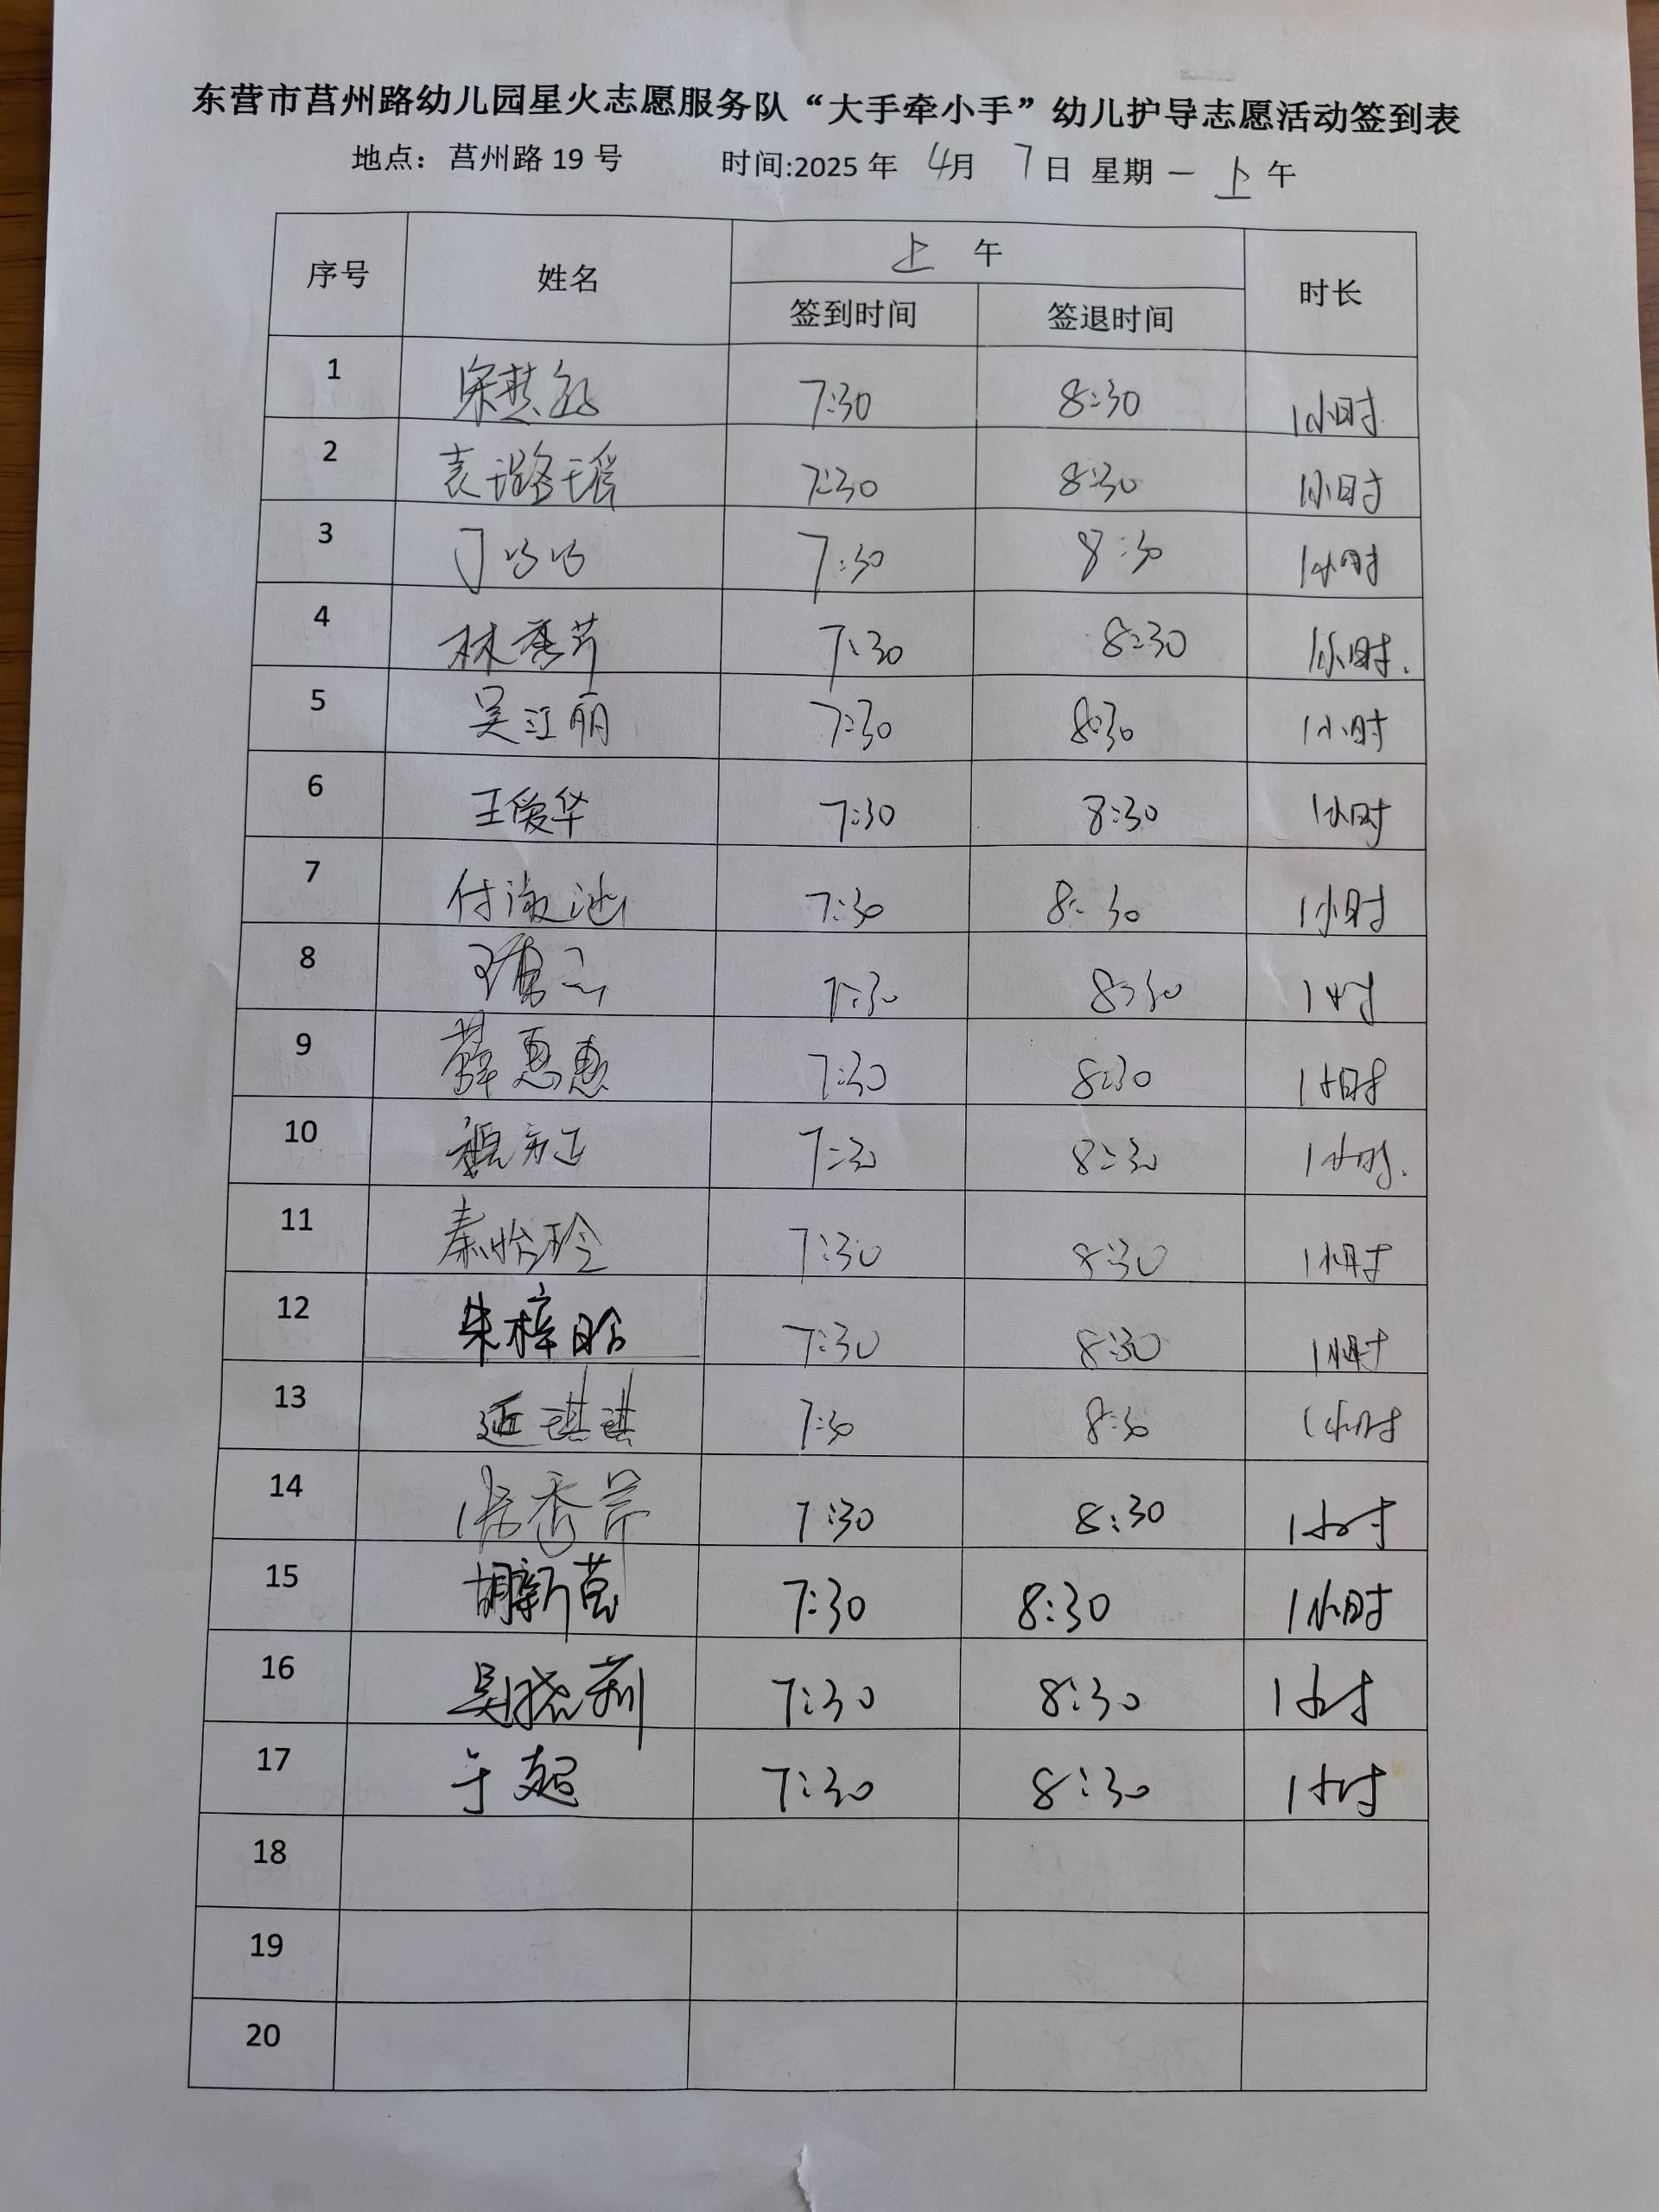 东营市莒州路幼儿园星火志愿服务队“大手牵小手”幼儿护导志愿活动签到表
地点：莒州路 19 号 时间:2025 年 4月 7日 星期一 上午
序号 姓名 上 午 时长
签到时间 签退时间
1 7:30 8:30 1小时
2 袁璐瑶 7:30 8:30 1小时
3 丁巧巧 7:30 8:30 1小时
4 林秀芹 7:30 8:30 1小时.
5 吴江丽 7:30 8:30 1小时
6 王爱华 7:30 8:30 1小时
7 付淑池 7:30 8:30 1小时
8 7:30 8:30 1小时
9 薛惠惠 7:30 8:30 1小时
10 7:30 8:30 1小时.
11 秦怡玲 7:30 8:30 1小时
12 朱梓晗 7:30 8:30 1小时
13 延琪琪 7:30 8:30 1小时
14 张秀芹 7:30 8:30 1小时
15 胡新苗 7:30 8:30 1小时
16 吴晓莉 7:30 8:30 1小时
17 于超 7:30 8:30 1小时
18
19
20